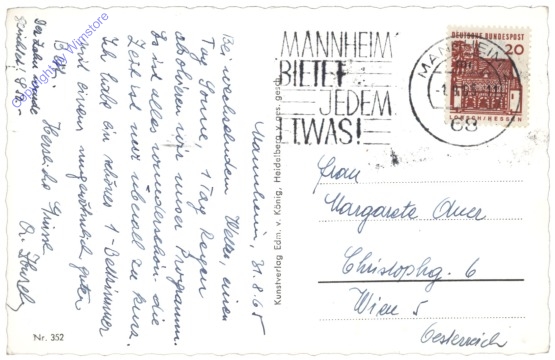 Mannheim, 31.8.65
Bei wechselndem Wetter, einen
Tag Sonne, 1 Tag Regen
absolvieren wir unser Programm.
Es ist alles wunderschön die
Zeit ist nur überall zu kurz.
Ich habe ein schönes 1-Bettzimmer
mit einem ungewöhnlich guten
Bett.
Herzliche Grüsse
Nr. 352
Kunstverlag Edm. v. König, Heidelberg ges. gesch.
MANNHEIM
BIETET
JEDEM
ETWAS!
MANNHEIM
68
DEUTSCHE BUNDESPOST
20
LORSCH/HESSEN
Frau
Margarete Auer
Christophg. 6
Wien 5
Oesterreich